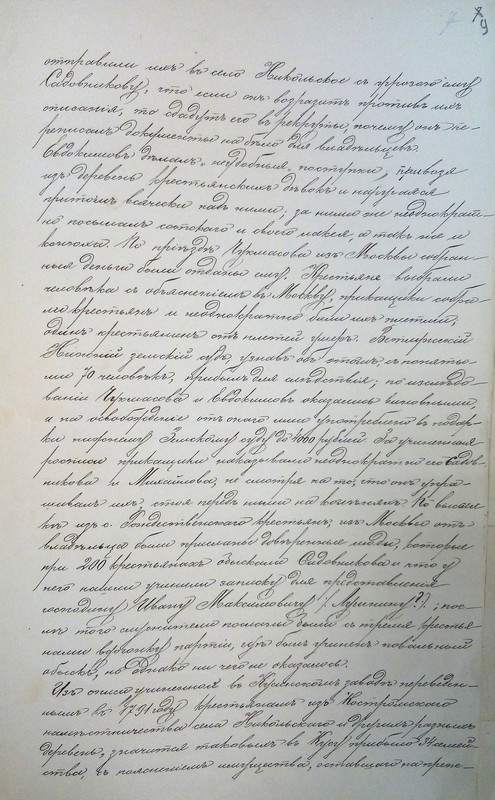 7 79
отправили ихъ въ село Никольское съ угрозою ему
Садовникову, что если онъ возразитъ противъ ихъ
описанія, то сдадутъ его въ рекруты, почему онъ пе-
реписалъ документы на бѣло для владѣльцевъ.
Евдокимовъ дѣлалъ неудобныя поступки, привозя
изъ деревень крестьянскихъ дѣвокъ и наругался
притомъ всячески надъ ними, за ними же неоднократ-
но посылалъ сотскаго и своего лакея, а такъ же и
конюха. По пріѣздѣ Чурмасова изъ Москвы собран-
ныя деньги были отданы ему. Крестьяне выбрали
человѣка съ объясненіемъ въ Москву, прикащики собра-
ли крестьянъ и неоднократно били ихъ плетьми,
одинъ крестьянинъ отъ плетей умеръ. Ветлужскій
Нижній земскій судъ, узнавъ объ этомъ, съ поняты-
ми 70 человѣкъ, прибылъ для слѣдствія; по изслѣдо-
ванію Чурмасовъ и Евдокимовъ оказались виновными,
а на освобожденіе отъ оного ими употреблено въ подар-
ки нижнему Земскому суду до 4000 рублей. За учиненныя
росписи прикащики наказывали неоднократно его Садов-
никова и Михайлова, не смотря на то, что онъ упра-
шивалъ ихъ, стоя передъ ними на колѣняхъ. По высылкѣ
къ изъ с. Рождественскаго крестьянъ, изъ Москвы отъ
владѣльца были присланы довѣренные люди, которые
при 200 крестьянахъ обыскали Садовникова и что у
него нашли учинили записку для представленія
господину Ивану Максимовичу (Лугинину?); пос-
лѣ того служители посланы были съ тремя крестья-
нами вдогонку партіи, гдѣ былъ учиненъ повальный
обыскъ, но однако ни чего не оказалось.
Изъ описи учиненной въ Кусинскомъ заводѣ переведен-
нымъ въ 1791 году крестьянамъ изъ Костромскаго
намѣстничества села Никольскаго и другихъ разныхъ
деревень, значится таковыхъ въ Кусу прибыло 34 семей-
ства, съ поясненіемъ имущества, оставшаго на преж-